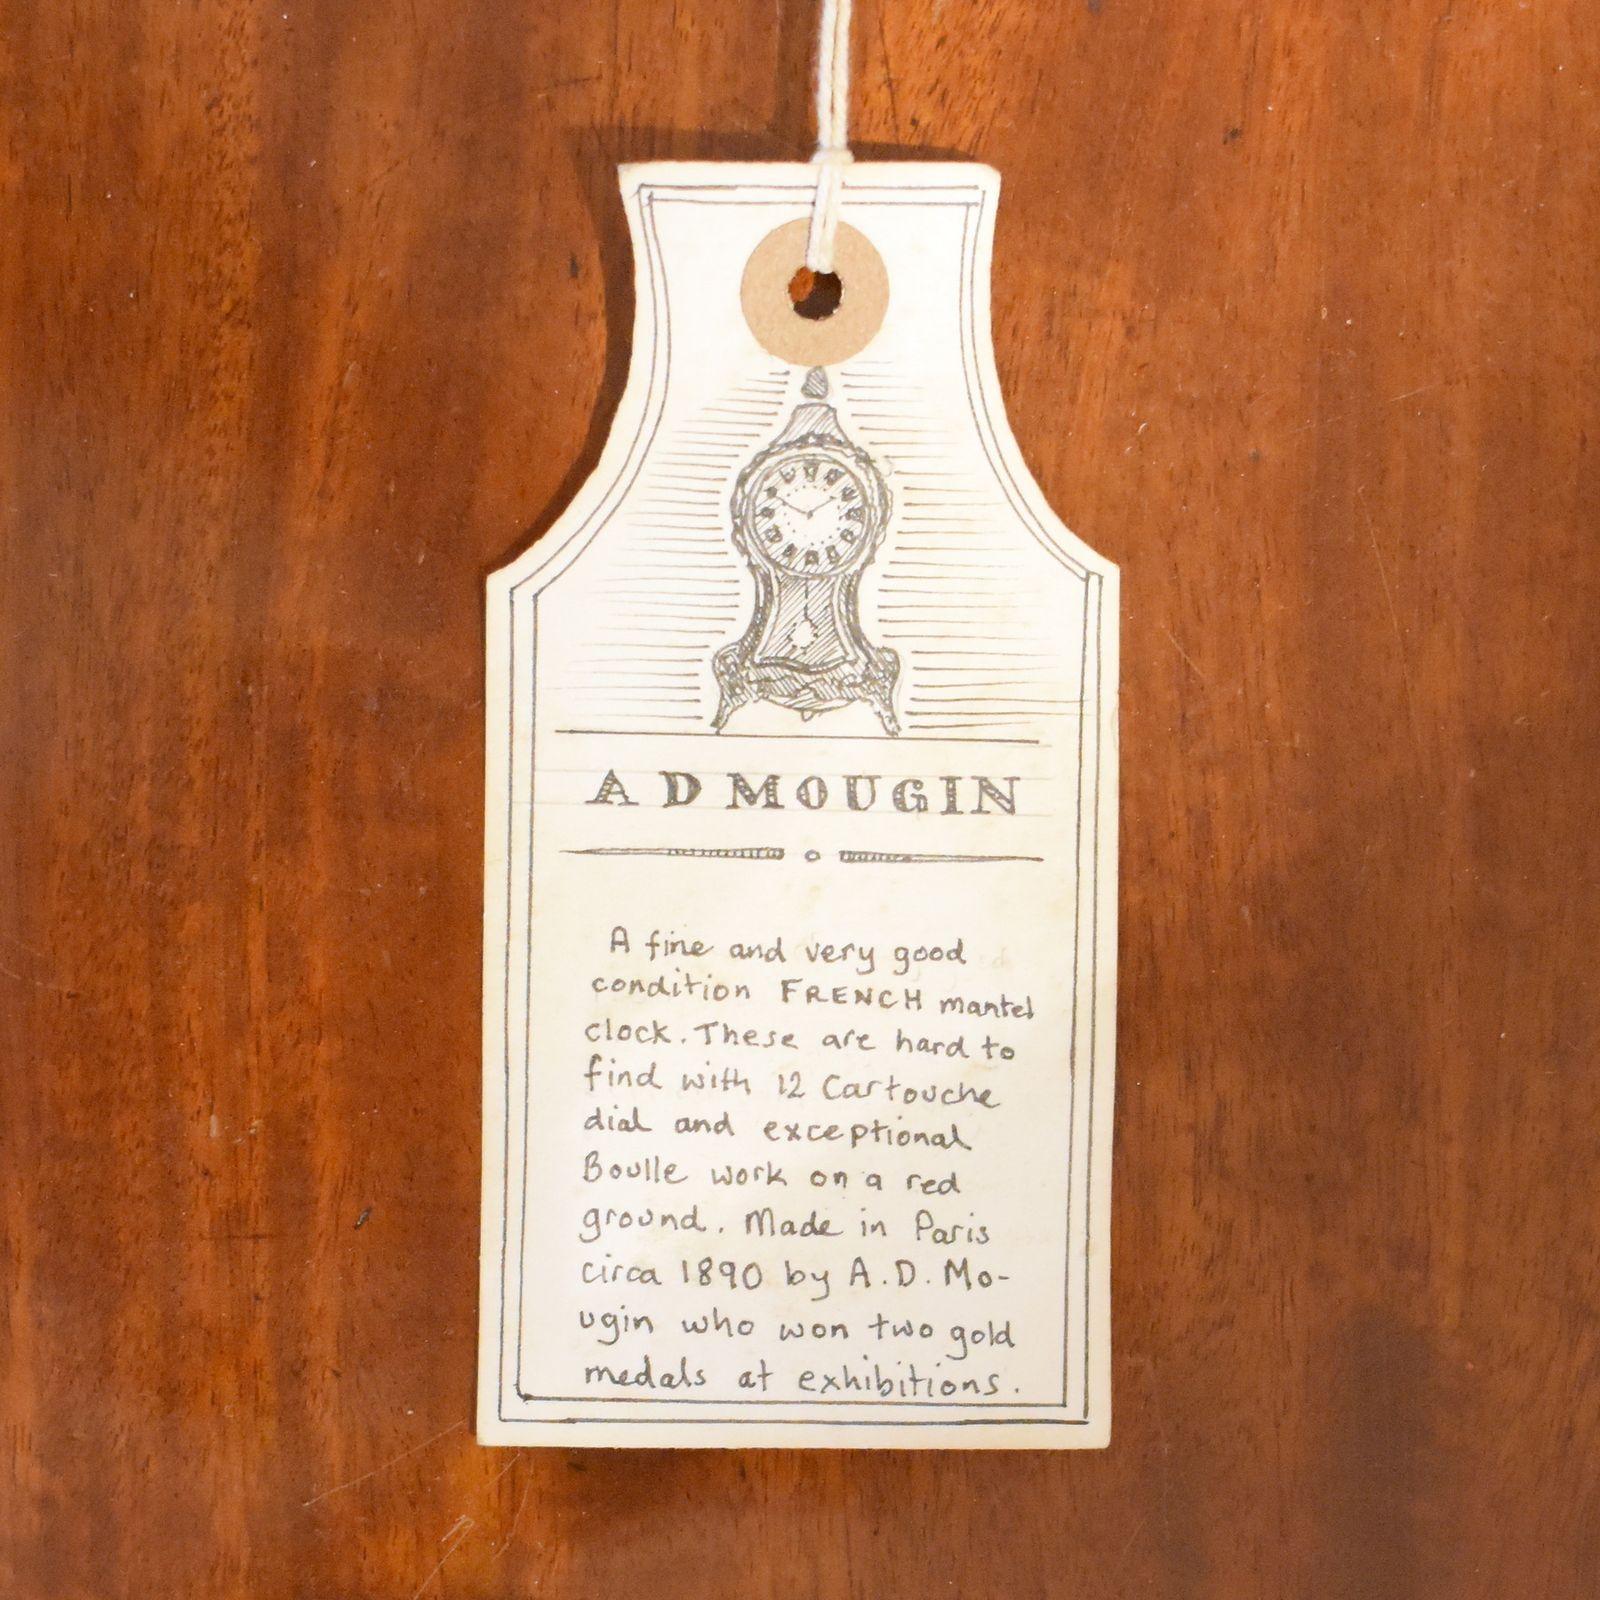 A D MOUGIN
A fine and very good
condition FRENCH mantel
clock. These are hard to
find with 12 Cartouche
dial and exceptional
Boulle work on a red
ground. Made in Paris
circa 1890 by A.D. Mo-
ugin who won two gold
medals at exhibitions.